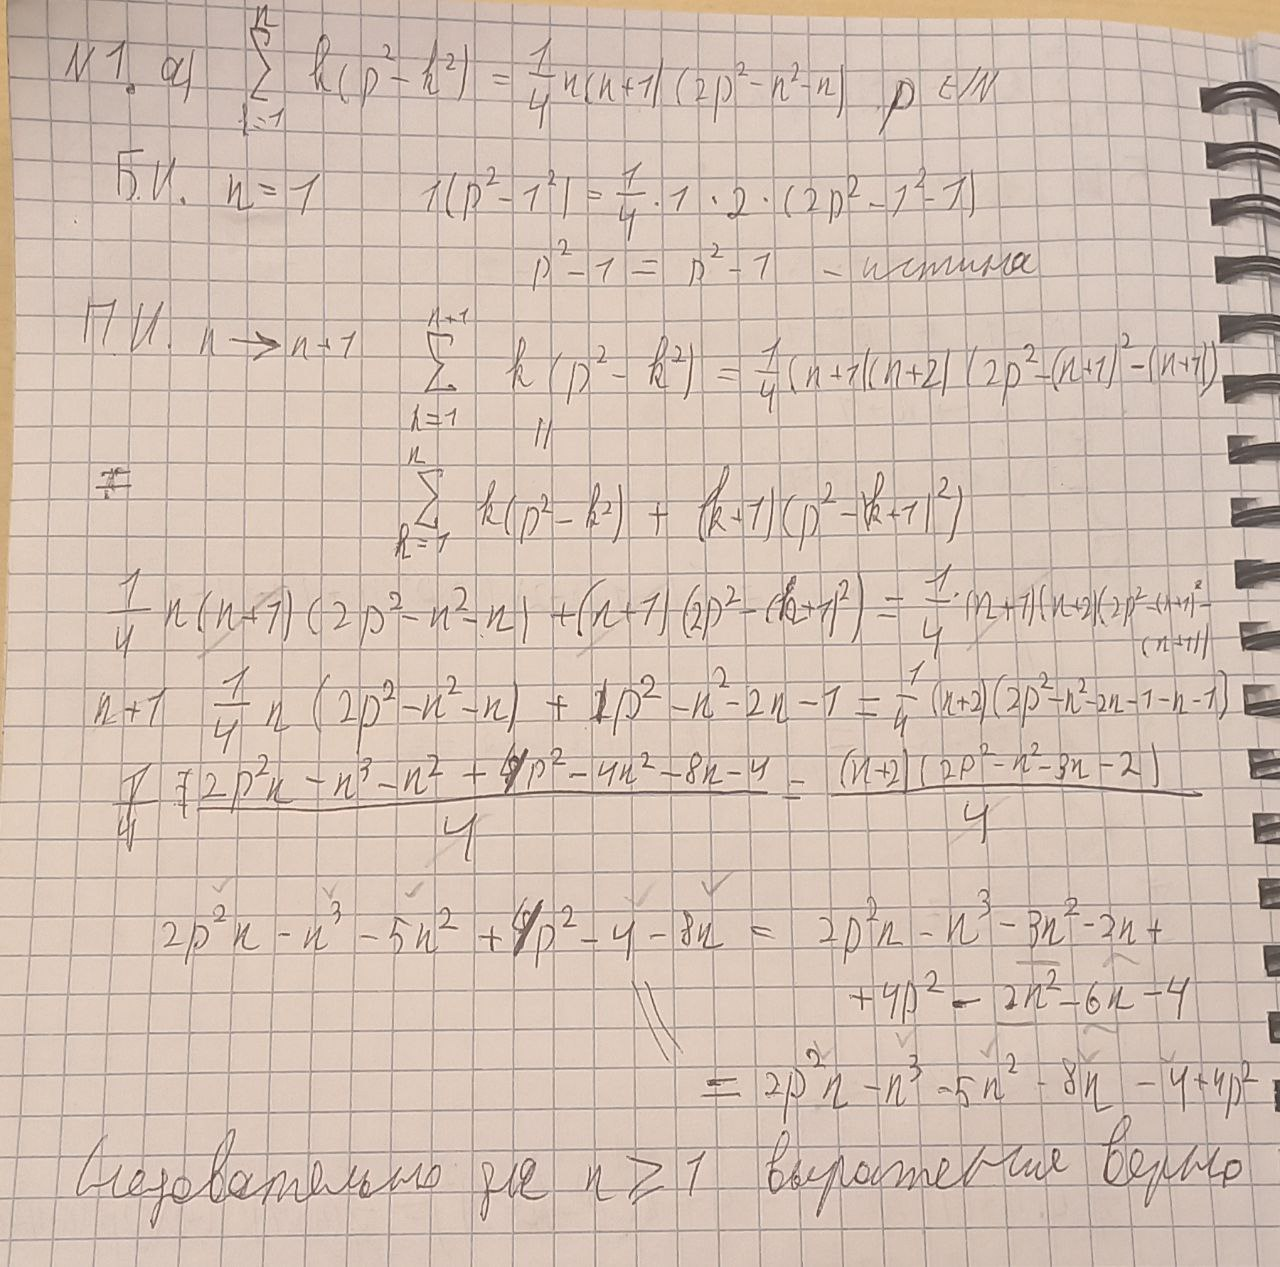 N1. a) \sum_{k=1}^{n} k(p^2-k^2) = \frac{1}{4} n(n+1)(2p^2-n^2-n) p ∈ N
Б.И. n=1 1(p^2-1^2) = \frac{1}{4} \cdot 1 \cdot 2 \cdot (2p^2-1^2-1)
p^2-1 = p^2-1 - истина
П.И. n → n+1 \sum_{k=1}^{n+1} k(p^2-k^2) = \frac{1}{4}(n+1)(n+2)(2p^2-(n+1)^2-(n+1))
||
\sum_{k=1}^{n} k(p^2-k^2) + (k+1)(p^2-(k+1)^2)
\frac{1}{4} n(n+1)(2p^2-n^2-n) + (n+1)(2p^2-(k+1)^2) = \frac{1}{4} \cdot (n+1)(n+2)(2p^2-(n+1)^2-(n+1))
n+1 \frac{1}{4} n (2p^2-n^2-n) + 1p^2-n^2-2n-1 = \frac{1}{4}(n+2)(2p^2-n^2-2n-1-n-1)
\frac{2p^2n-n^3-n^2+4p^2-4n^2-8n-4}{4} = \frac{(n+2)(2p^2-n^2-3n-2)}{4}
2p^2n-n^3-5n^2+4p^2-4-8n = 2p^2n-n^3-3n^2-2n+
+4p^2-2n^2-6n-4
= 2p^2n-n^3-5n^2-8n-4+4p^2
Следовательно для n ≥ 1 выражение верно